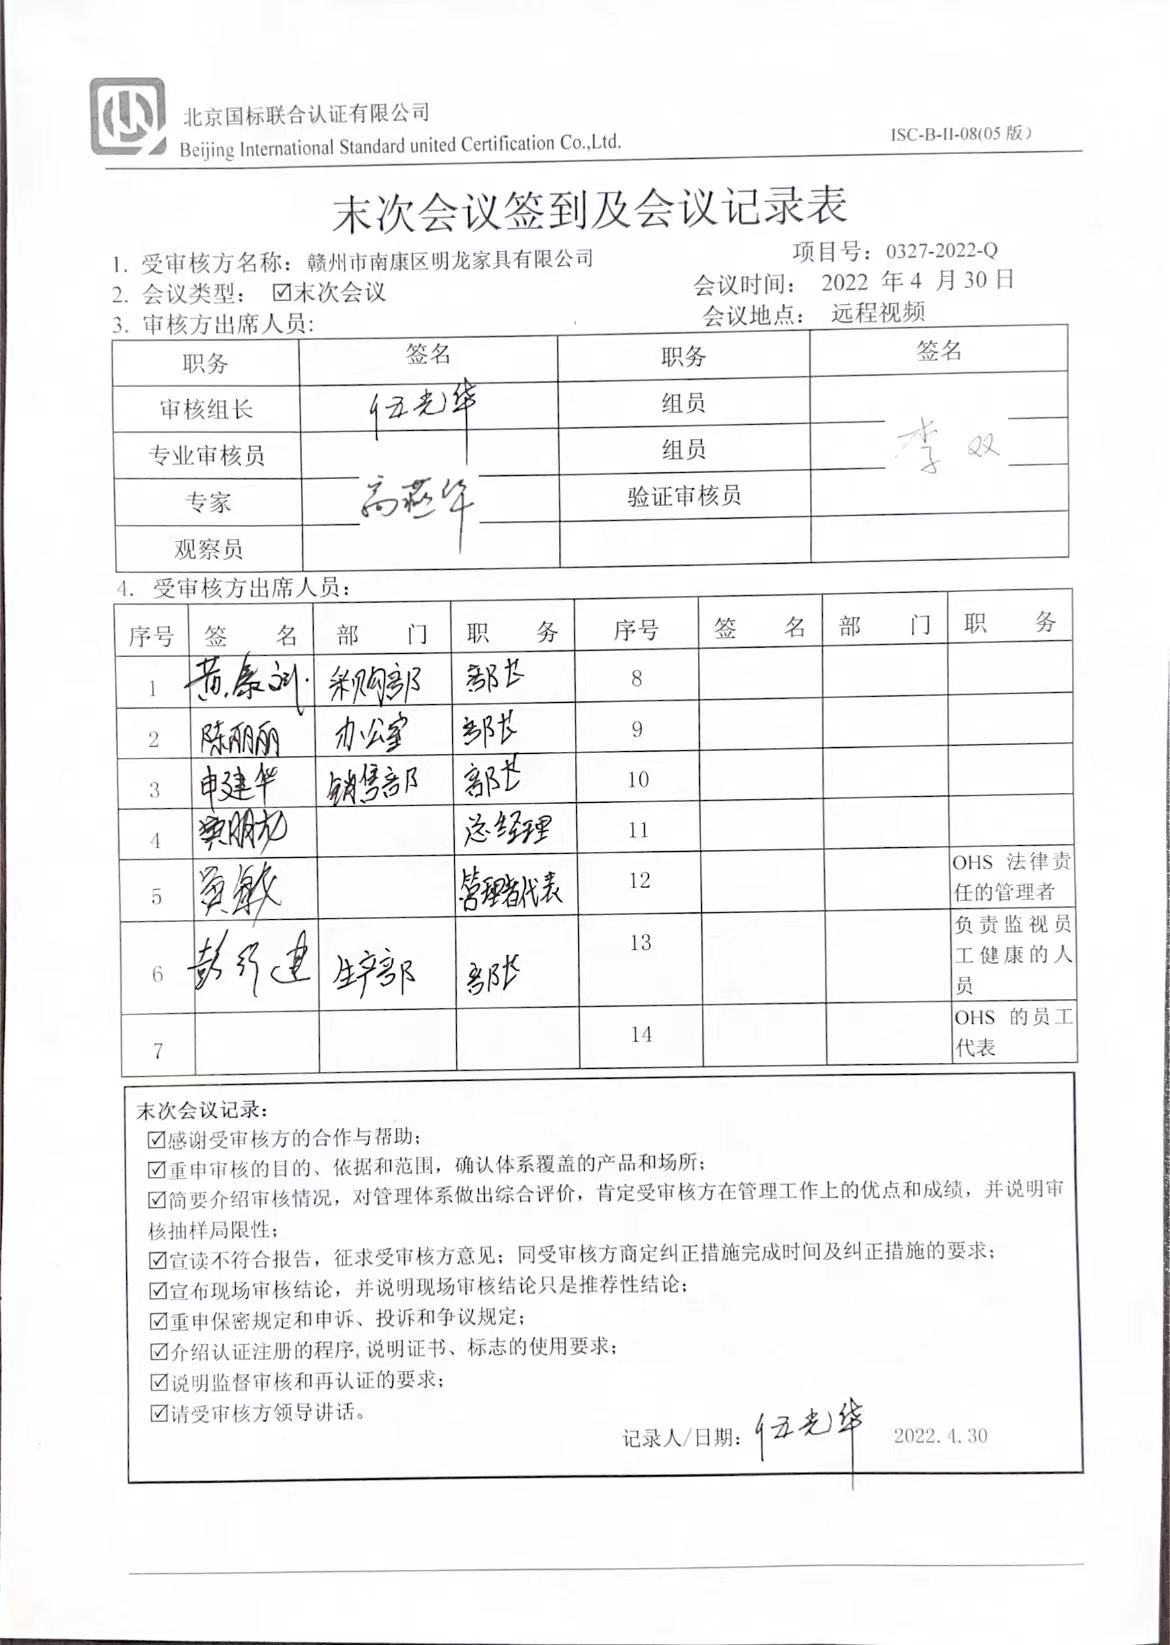 北京国标联合认证有限公司
Beijing International Standard united Certification Co.,Ltd.
ISC-B-II-08(05 版)
末次会议签到及会议记录表
1. 受审核方名称：赣州市南康区明龙家具有限公司 项目号：0327-2022-Q
2. 会议类型：☑末次会议 会议时间： 2022 年 4 月 30 日
3. 审核方出席人员: 会议地点： 远程视频
职务 签名 职务 签名
审核组长 伍光华 组员
专业审核员 组员 李双
专家 高燕华 验证审核员
观察员
4. 受审核方出席人员：
序号 签 名 部 门 职 务 序号 签 名 部 门 职 务
1 采购部 部长 8
2 陈丽丽 办公室 部长 9
3 申建华 销售部 部长 10
4 总经理 11
5 黄敏 管理者代表 12 OHS 法律责
任的管理者
6 生产部 部长 13 负责监视员
工健康的人
员
7 14 OHS 的员工
代表
末次会议记录：
☑感谢受审核方的合作与帮助；
☑重申审核的目的、依据和范围，确认体系覆盖的产品和场所；
☑简要介绍审核情况，对管理体系做出综合评价，肯定受审核方在管理工作上的优点和成绩，并说明审
核抽样局限性；
☑宣读不符合报告，征求受审核方意见；同受审核方商定纠正措施完成时间及纠正措施的要求；
☑宣布现场审核结论，并说明现场审核结论只是推荐性结论；
☑重申保密规定和申诉、投诉和争议规定；
☑介绍认证注册的程序,说明证书、标志的使用要求；
☑说明监督审核和再认证的要求；
☑请受审核方领导讲话。
记录人/日期：伍光华 2022.4.30